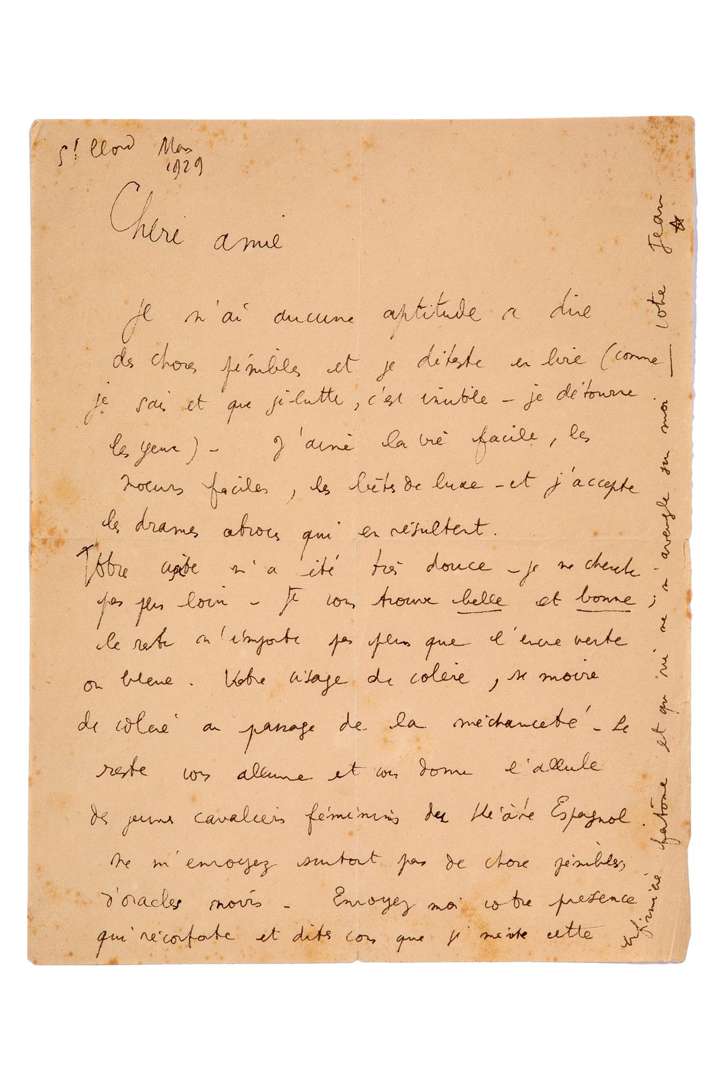 St Cloud Mars
1929
Chère amie
Je n'ai aucune aptitude a dire
des choses pénibles et je déteste en lire (comme
je sais et que je lutte, c'est inutile – je détourne
les yeux) – J'aime la vie facile, les
mœurs facile, les bêtes de luxe – et j'accepte
les drames atroces qui en résultent.
Votre visite m'a été très douce – je ne cherche
pas plus loin – Je vous trouve belle et bonne ;
le reste n'importe pas plus que l'encre verte
ou bleue. Votre visage de colère, se moire
de colère au passage de la méchanceté – Le
reste vous allume et vous donne l'allure
des jeunes cavaliers féminins du théâtre Espagnol
Ne m'envoyez surtout pas de chose pénibles,
d'oracles noirs – Envoyez moi votre présence
qui réconforte et dites vous que je mérite cette
fantôme et qui ne m'aveugle sur moi — votre Jean